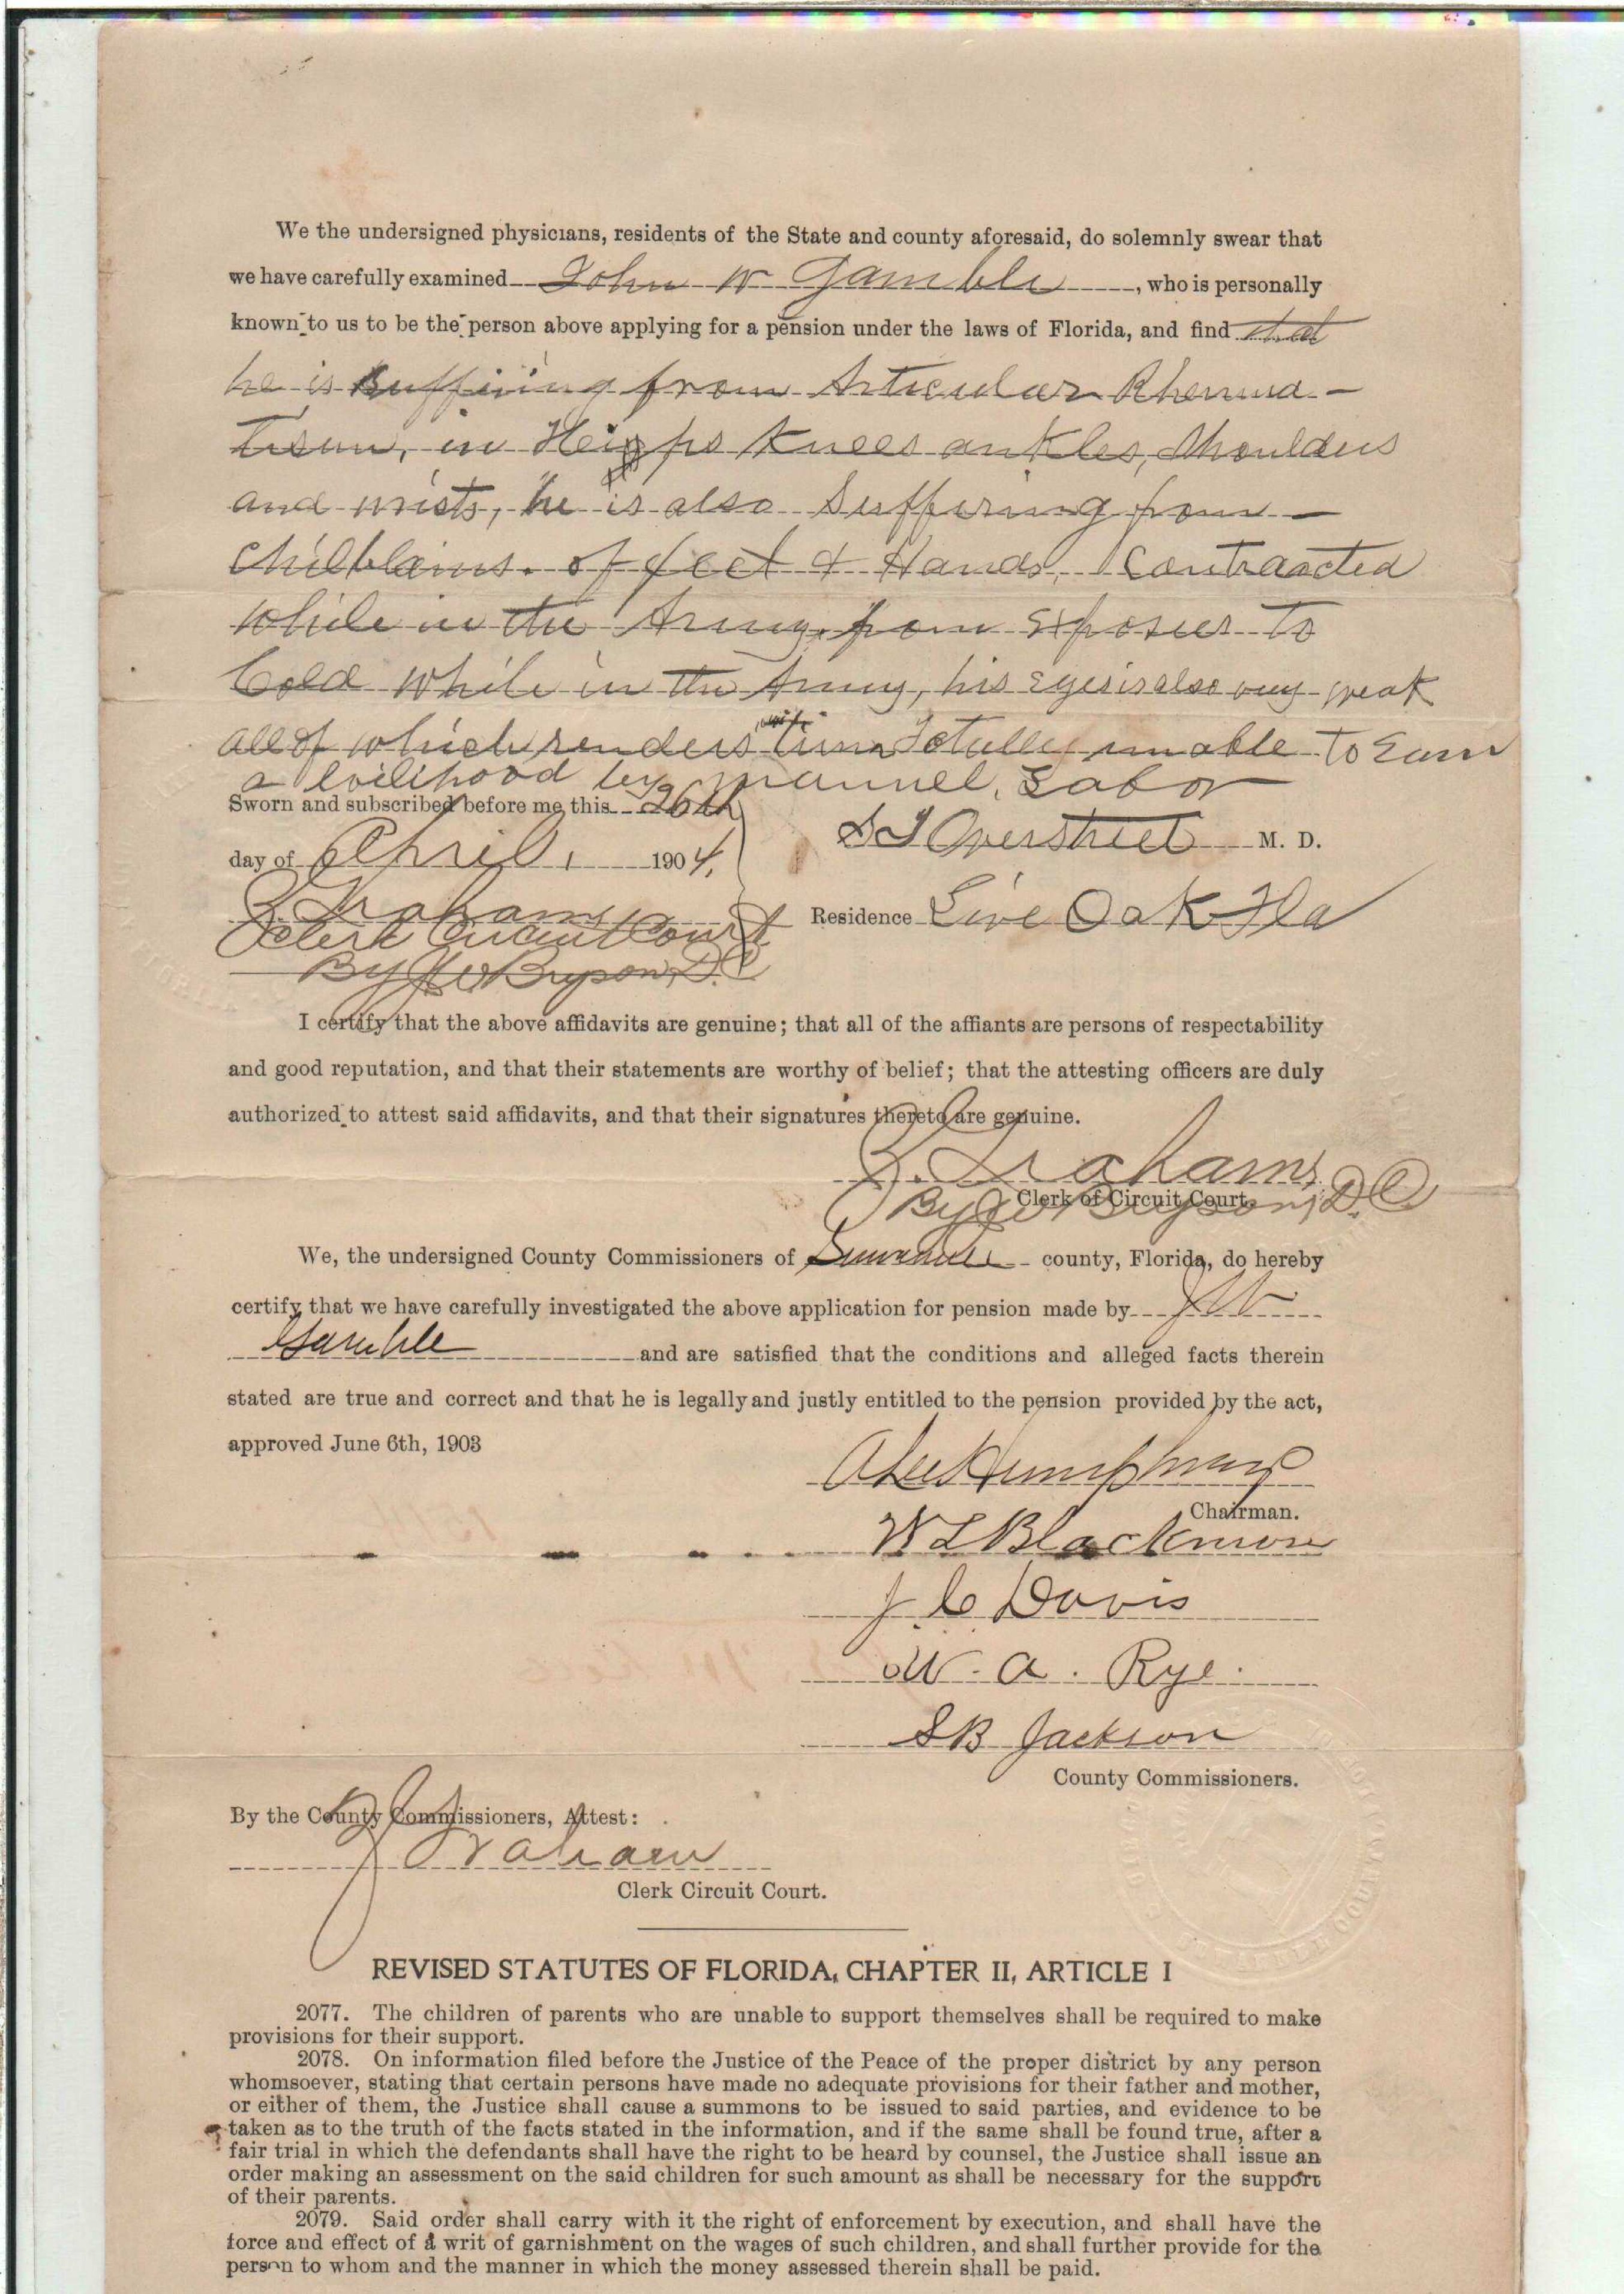 We the undersigned physicians, residents of the State and county aforesaid, do solemnly swear that
we have carefully examined John W Gamble, who is personally
known to us to be the person above applying for a pension under the laws of Florida, and find that
he is suffiring from Articular Rheuma-
tism, in Heips Knees ankles, Shoulders
and wrists, he is also Suffering from
Chilblains. of feet & Hands, Contracted
while in the Army, from Exposier To
Cold while in the Army, his Eyes is also very weak
all of which renders him Totally unable To Earn
a livlihood by manuel, Labor
Sworn and subscribed before me this 26th
day of April, 1904,
S T Overstreet M. D.
Residence Live Oak Fla
Graham
Clerk Circuit Court
By J W Bryson, D.C
I certify that the above affidavits are genuine; that all of the affiants are persons of respectability
and good reputation, and that their statements are worthy of belief; that the attesting officers are duly
authorized to attest said affidavits, and that their signatures thereto are genuine.
Graham,
Clerk of Circuit Court.
By J W Bryson, D.C
We, the undersigned County Commissioners of Suwannee county, Florida, do hereby
certify that we have carefully investigated the above application for pension made by J W
Gamble and are satisfied that the conditions and alleged facts therein
stated are true and correct and that he is legally and justly entitled to the pension provided by the act,
approved June 6th, 1903
A Lee Humphreys
Chairman.
W L Blackmon
J. C. Davis
W. A. Rye.
S B Jackson
County Commissioners.
By the County Commissioners, Attest:
Graham
Clerk Circuit Court.
REVISED STATUTES OF FLORIDA, CHAPTER II, ARTICLE I
2077. The children of parents who are unable to support themselves shall be required to make
provisions for their support.
2078. On information filed before the Justice of the Peace of the proper district by any person
whomsoever, stating that certain persons have made no adequate provisions for their father and mother,
or either of them, the Justice shall cause a summons to be issued to said parties, and evidence to be
taken as to the truth of the facts stated in the information, and if the same shall be found true, after a
fair trial in which the defendants shall have the right to be heard by counsel, the Justice shall issue an
order making an assessment on the said children for such amount as shall be necessary for the support
of their parents.
2079. Said order shall carry with it the right of enforcement by execution, and shall have the
force and effect of a writ of garnishment on the wages of such children, and shall further provide for the
person to whom and the manner in which the money assessed therein shall be paid.